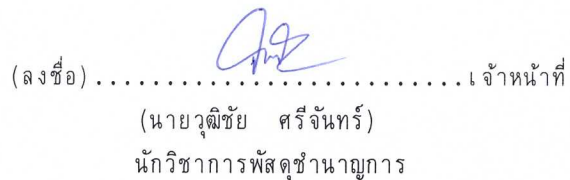 (ลงชื่อ).............................เจ้าหน้าที่
(นายวุฒิชัย ศรีจันทร์)
นักวิชาการพัสดุชำนาญการ